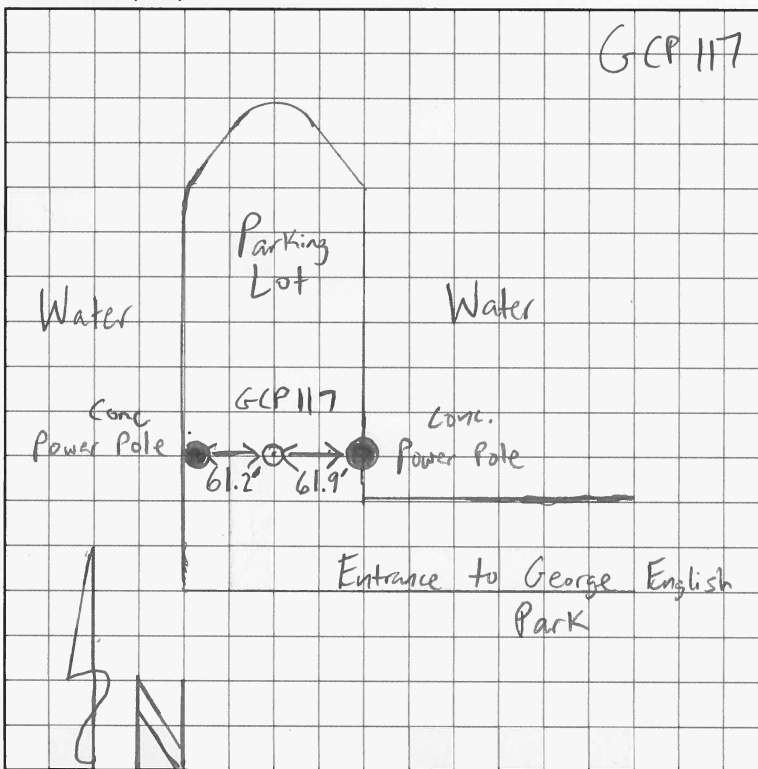 GCP 117
Parking
Lot
Water
Water
GCP 117
Conc
Power Pole
Conc.
Power Pole
61.2'
61.9'
Entrance to George English
Park
N